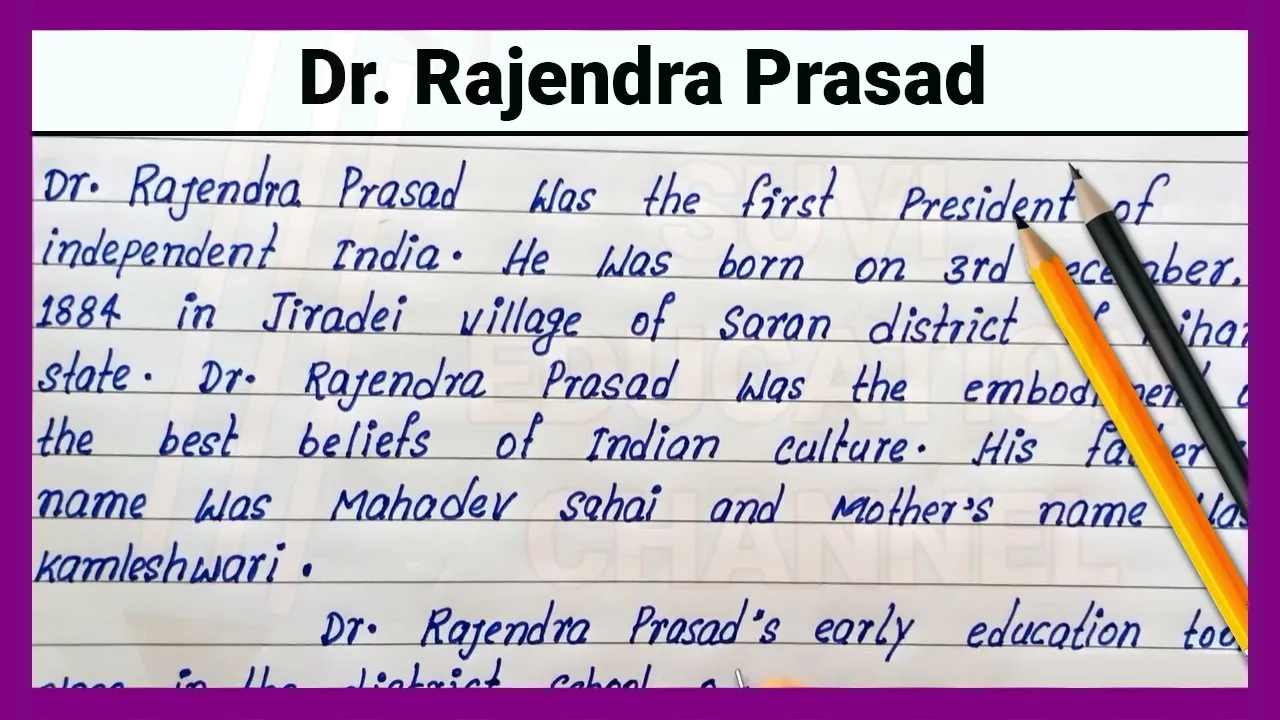 Dr. Rajendra Prasad
Dr. Rajendra Prasad was the first President of
independent India. He was born on 3rd ecember.
1884 in Jiradei village of Saran district ihar
state. Dr. Rajendra Prasad was the
the best beliefs of Indian culture. His
name was Mahadev sahai and Mother's name was
Kamleshwari.
Dr. Rajendra Prasad's early education too
in the district school
SUVI
EDUCATION
CHANNEL